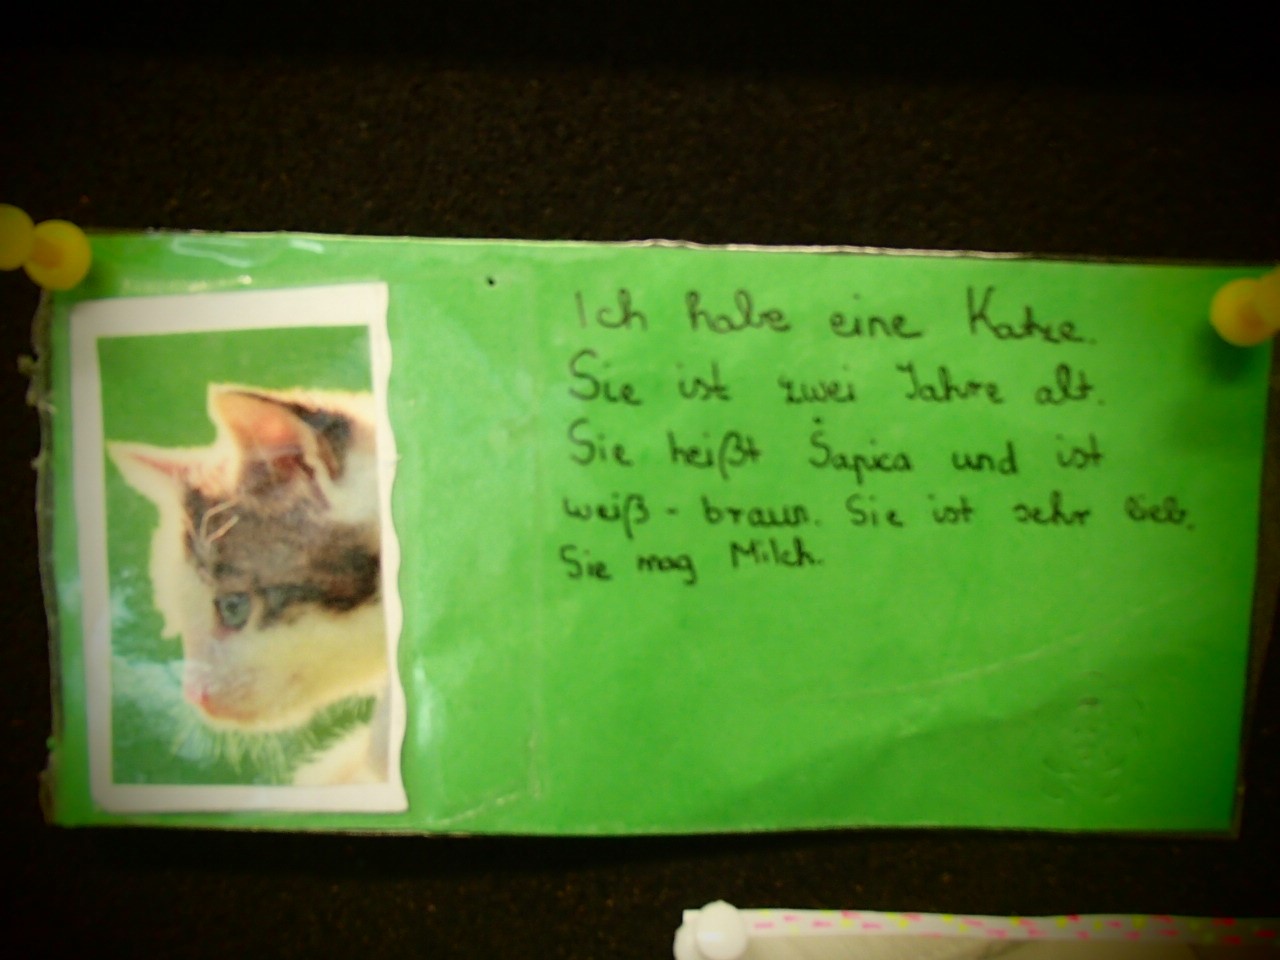 Ich habe eine Katze.
Sie ist zwei Jahre alt.
Sie heißt Šapica und ist
weiß - braun. Sie ist sehr lieb.
Sie mag Milch.